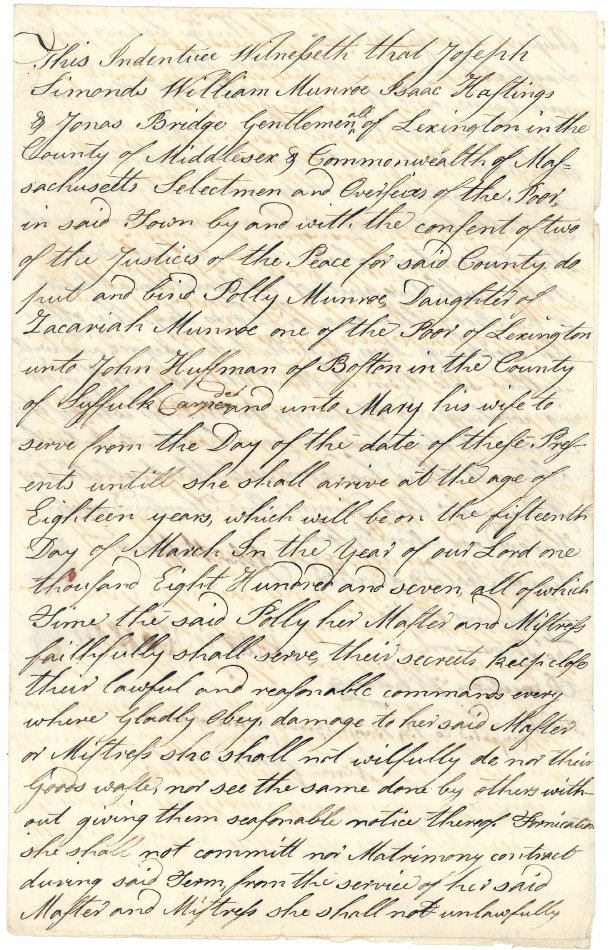 This Indenture Witneſseth that Joſeph
Simonds William Munroe Isaac Haſtings
& Jonas Bridge Gentlemen all of Lexington in the
County of Middlesex & Commonwealth of Maſ=
sachusetts Selectmen and Overſeers of the Poor,
in said Town by and with the conſent of two
of the Justices of the Peace for said County, do
put and bind Polly Munroe, Daughter of
Zacariah Munroe one of the Poor of Lexington
unto John Huffman of Boſton in the County
of Suffulk and unto Mary his wife to
serve from the Day of the date of theſe Preſ-
ents untill she shall arrive at the age of
Eighteen years, which will be on the fifteenth
Day of March In the Year of our Lord one
thouſand Eight Hundred and seven all of which
Time the said Polly her Maſter and Miſtreſs
faithfully shall serve, their secreets keep cloſe
their lawful and reaſonable commands every
where Gladly Obey, damage to her said Maſter
or Miſtreſs she shall not wilfully do nor their
Goods waſte, nor see the same done by others with-
out giving them seaſonable notice thereof Fornication
she shall not committ nor Matrimony contract
during said Term, from the service of her said
Maſter and Miſtreſs she shall not unlawfully